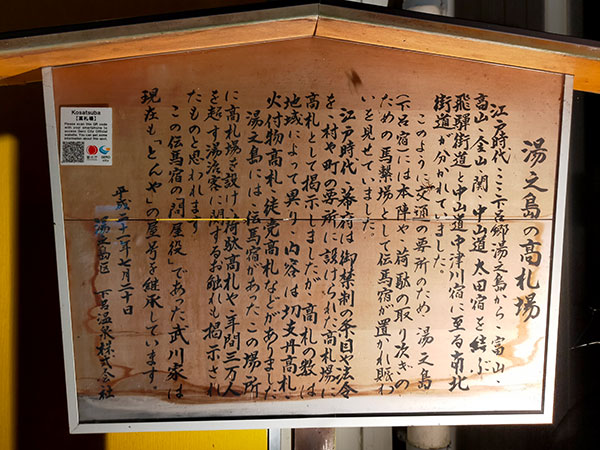 湯之島の高札場
江戸時代、ここ下呂郷湯之島から、富山・
高山・金山・関・中山道太田宿を結ぶ
飛騨街道と中山道中津川宿に至る南北
街道が分かれていました。
このように交通の要所のため、湯之島
(下呂宿)には本陣や、荷駄の取り次ぎの
ための馬繋場として伝馬宿が置かれ賑わ
いを見せていました。
江戸時代、幕府は御禁制の条目や法令
を、村や町の要所に設けられた高札場に
高札として掲示しましたが、高札の数は
地域によって異り、内容は切支丹高札・
火付物高札・徒党高札などがありました
湯之島には、伝馬宿があったこの場所
に高札場を設け、荷駄高札や、年間三万人
を超す湯治客に関するお触れも掲示され
たものと思われます
この伝馬宿の「問屋役」であった武川家は
現在も「とんや」の屋号を継承しています。
平成二十一年七月二十日
湯之島区 下呂温泉株式会社
Kosatsuba
【高札場】
Please scan this QR code
with your smartphone to
access Gero City Official
website. You can get some
information about this spot.